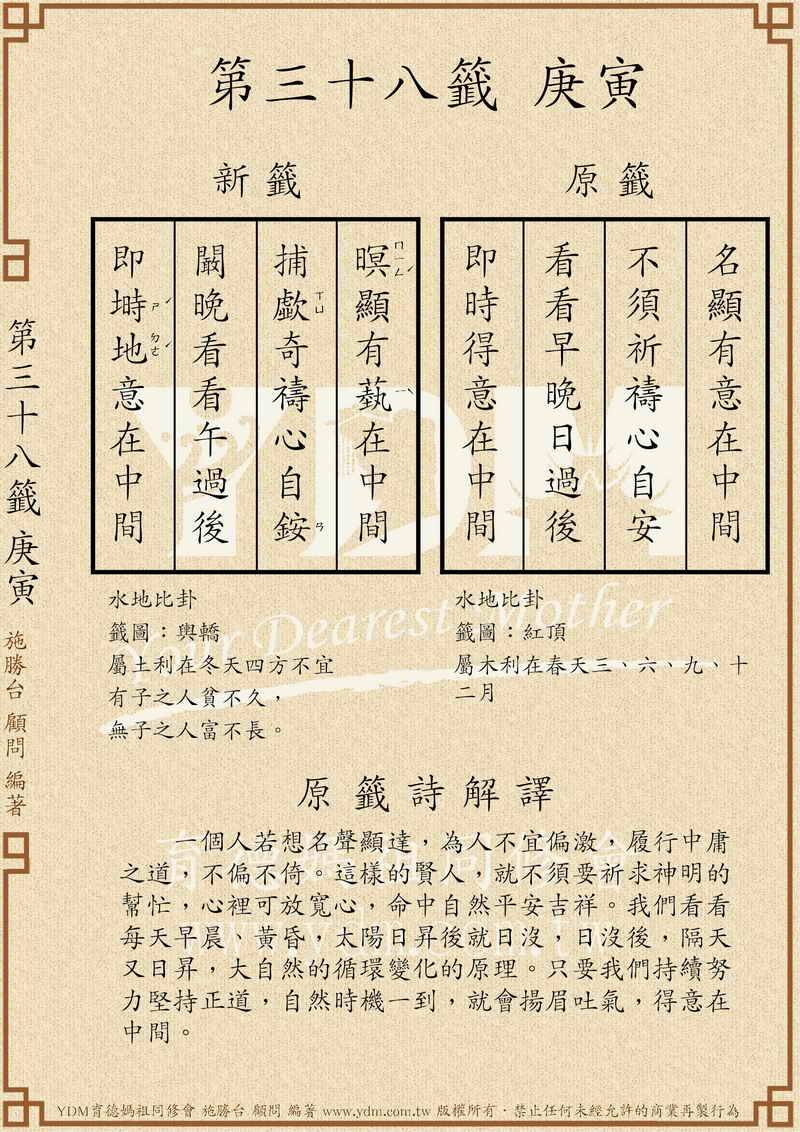 第三十八籤 庚寅
原籤
名顯有意在中間
不須祈禱心自安
看看早晚日過後
即時得意在中間
水地比卦
籤圖：紅頂
屬木利在春天三、六、九、十
二月
新籤
暝顯有蓺在中間
ㄇㄧㄥˊ
ㄧˋ
捕歔奇禱心自銨
ㄒㄩ
ㄢ
闞晚看看午過後
即塒地意在中間
ㄕˊ
ㄉㄜˊ
水地比卦
籤圖：輿轎
屬土利在冬天四方不宜
有子之人貧不久，
無子之人富不長。
原籤詩解譯
一個人若想名聲顯達，為人不宜偏激，履行中庸
之道，不偏不倚。這樣的賢人，就不須要祈求神明的
幫忙，心裡可放寬心，命中自然平安吉祥。我們看看
每天早晨、黃昏，太陽日昇後就日沒，日沒後，隔天
又日昇，大自然的循環變化的原理。只要我們持續努
力堅持正道，自然時機一到，就會揚眉吐氣，得意在
中間。
第三十八籤 庚寅 施勝台 顧問 編著
YDM
Your Dearest Mother
育德媽祖同修會
www.ydm.com.tw
YDM育德媽祖同修會 施勝台 顧問 編著 www.ydm.com.tw 版權所有‧禁止任何未經允許的商業再製行為